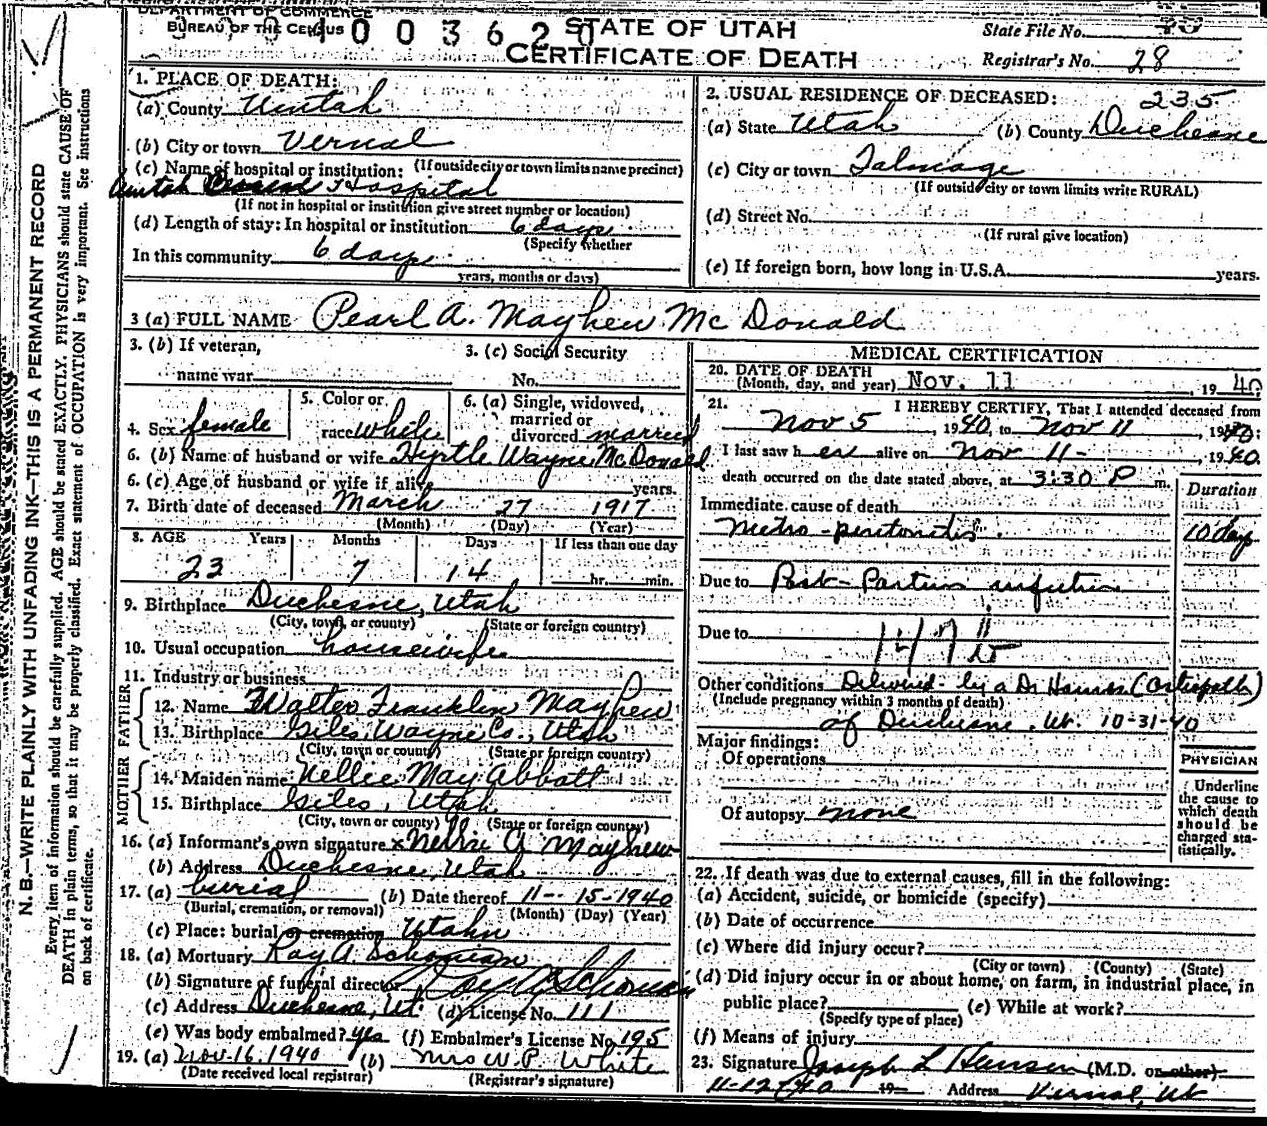 DEPARTMENT OF COMMERCE
BUREAU OF THE CENSUS
003620
STATE OF UTAH
CERTIFICATE OF DEATH
State File No.
Registrar's No. 28
N. B.—WRITE PLAINLY WITH UNFADING INK—THIS IS A PERMANENT RECORD
Every item of information should be carefully supplied. AGE should be stated EXACTLY. PHYSICIANS should state CAUSE OF
DEATH in plain terms, so that it may be properly classified. Exact statement of OCCUPATION is very important. See instructions
on back of certificate.
1. PLACE OF DEATH:
(a) County Uintah
(b) City or town Vernal
(c) Name of hospital or institution: (If outside city or town limits name precinct)
Uintah Hospital
(If not in hospital or institution give street number or location)
(d) Length of stay: In hospital or institution 6 days
(Specify whether
In this community 6 days
years, months or days)
2. USUAL RESIDENCE OF DECEASED: 235
(a) State Utah (b) County Duchesne
(c) City or town Talmage
(If outside city or town limits write RURAL)
(d) Street No.
(If rural give location)
(e) If foreign born, how long in U.S.A. years.
3 (a) FULL NAME Pearl A. Mayhew McDonald
3. (b) If veteran,
name war
3. (c) Social Security
No.
4. Sex female
5. Color or
race white
6. (a) Single, widowed,
married or
divorced married
6. (b) Name of husband or wife Hyrtle Wayne McDonald
6. (c) Age of husband or wife if alive years.
7. Birth date of deceased March 27 1917
(Month) (Day) (Year)
8. AGE Years Months Days If less than one day
23 7 14 hr. min.
9. Birthplace Duchesne, Utah
(City, town, or county) (State or foreign country)
10. Usual occupation housewife
11. Industry or business
FATHER
12. Name Walter Franklin Mayhew
13. Birthplace Giles, Wayne Co., Utah
(City, town or county) (State or foreign country)
MOTHER
14. Maiden name Nellie May Abbott
15. Birthplace Giles, Utah
(City, town or county) (State or foreign country)
16. (a) Informant's own signature x Nellie A Mayhew
(b) Address Duchesne, Utah
17. (a) burial (b) Date thereof 11-15-1940
(Burial, cremation, or removal) (Month) (Day) (Year)
(c) Place: burial or cremation Utahn
18. (a) Mortuary Ray A. Schonian
(b) Signature of funeral director
(c) Address Duchesne, Ut. (d) License No. 111
(e) Was body embalmed? yes (f) Embalmer's License No. 195
19. (a) Nov. 16. 1940 (b) Mrs W. P. White
(Date received local registrar) (Registrar's signature)
MEDICAL CERTIFICATION
20. DATE OF DEATH
(Month, day, and year) Nov. 11, 1940
21. I HEREBY CERTIFY, That I attended deceased from
Nov 5, 1940, to Nov 11, 1940:
I last saw her alive on Nov 11-, 1940.
death occurred on the date stated above, at 3:30 P m.
Duration
Immediate cause of death
Metro-peritonitis. 10 days
Due to Post-Partum infection
Due to
147 b
Other conditions Delivered by a Dr Hansen (Osteopath)
(Include pregnancy within 3 months of death)
of Duchesne. Ut. 10-31-40
Major findings:
Of operations
Of autopsy none
PHYSICIAN
Underline
the cause to
which death
should be
charged sta-
tistically.
22. If death was due to external causes, fill in the following:
(a) Accident, suicide, or homicide (specify)
(b) Date of occurrence
(c) Where did injury occur?
(City or town) (County) (State)
(d) Did injury occur in or about home, on farm, in industrial place, in
public place? (e) While at work?
(Specify type of place)
(f) Means of injury
23. Signature Joseph L Hansen (M.D. or other)
11-12-40 19 Address Vernal, Ut